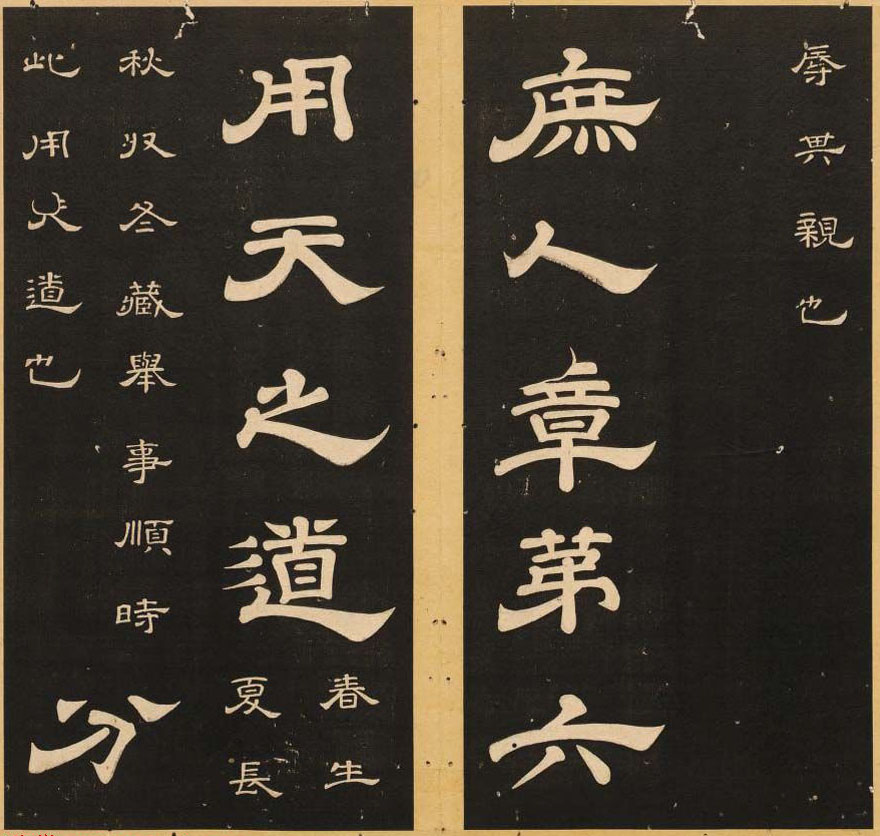 辱其親也
庶人章苐六
用天之道
春生
夏長
秋収冬藏舉事順時
此用天道也
分